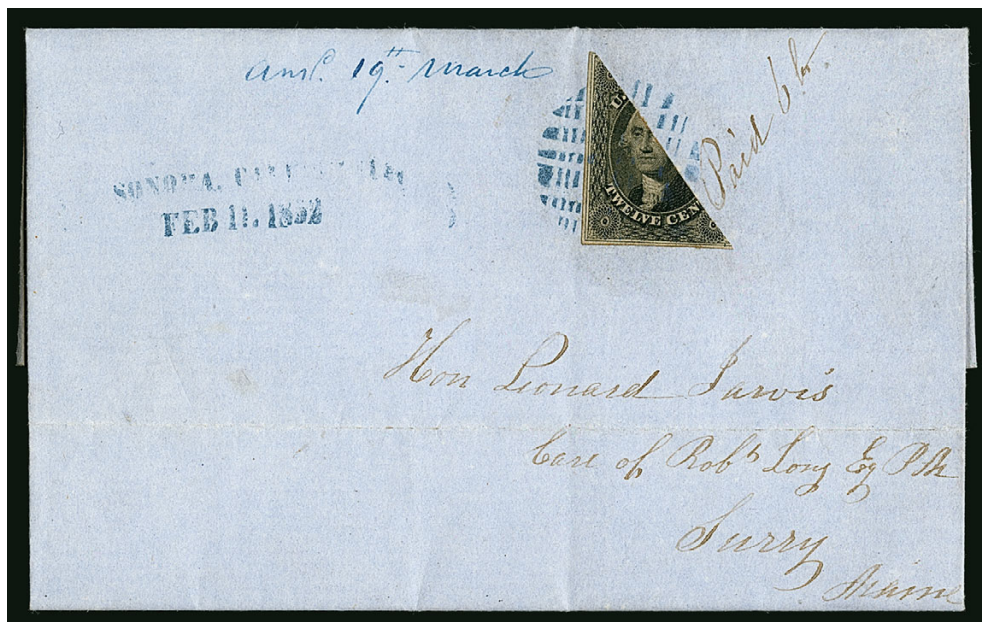 ansd. 19th March
Paid 6
SONOMA, CALIFORNIA
FEB 11. 1852
U.
TWELVE CEN
Hon Leonard Jarvis
Care of Robt Long Esq PM
Surry
Maine